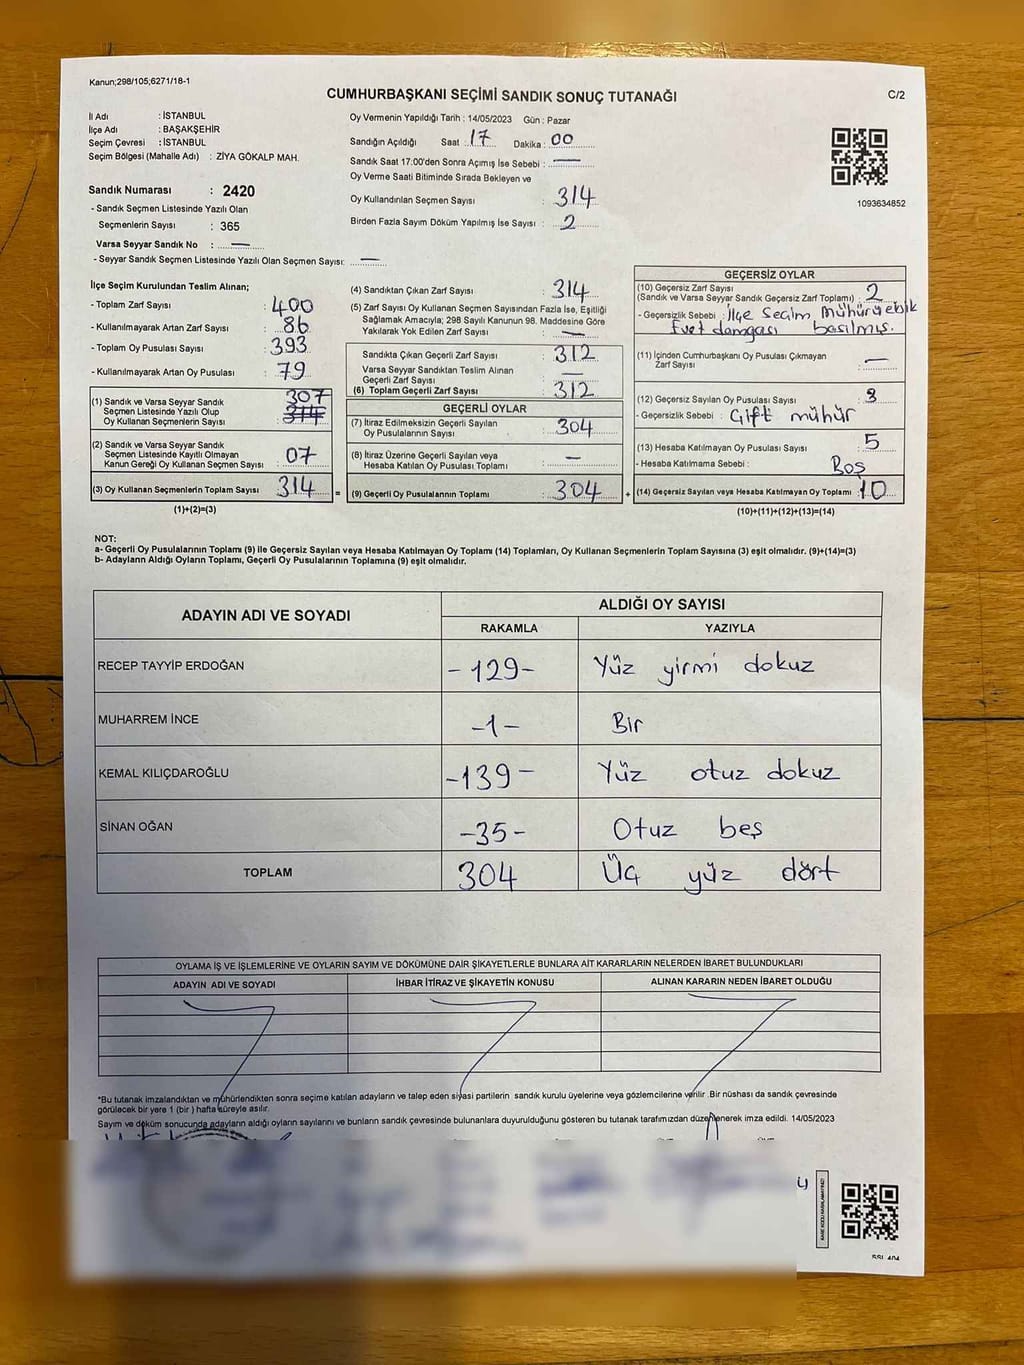 Kanun;298/105;6271/18-1
CUMHURBAŞKANI SEÇİMİ SANDIK SONUÇ TUTANAĞI
C/2
İl Adı : İSTANBUL
İlçe Adı : BAŞAKŞEHİR
Seçim Çevresi : İSTANBUL
Seçim Bölgesi (Mahalle Adı) : ZİYA GÖKALP MAH.
Sandık Numarası : 2420
- Sandık Seçmen Listesinde Yazılı Olan
Seçmenlerin Sayısı : 365
Varsa Seyyar Sandık No : —
- Seyyar Sandık Seçmen Listesinde Yazılı Olan Seçmen Sayısı: —
Oy Vermenin Yapıldığı Tarih : 14/05/2023 Gün : Pazar
Sandığın Açıldığı Saat : 17 Dakika : 00
Sandık Saat 17.00'den Sonra Açımış İse Sebebi : —
Oy Verme Saati Bitiminde Sırada Bekleyen ve
Oy Kullandırılan Seçmen Sayısı : 314
Birden Fazla Sayım Döküm Yapılmış İse Sayısı : 2
1093634852
İlçe Seçim Kurulundan Teslim Alınan;
- Toplam Zarf Sayısı : 400
- Kullanılmayarak Artan Zarf Sayısı : 86
- Toplam Oy Pusulası Sayısı : 393
- Kullanılmayarak Artan Oy Pusulası : 79
(1) Sandık ve Varsa Seyyar Sandık
Seçmen Listesinde Yazılı Olup
Oy Kullanan Seçmenlerin Sayısı : 307 314
(2) Sandık ve Varsa Seyyar Sandık
Seçmen Listesinde Kayıtlı Olmayan
Kanun Gereği Oy Kullanan Seçmen Sayısı : 07
(3) Oy Kullanan Seçmenlerin Toplam Sayısı : 314
(1)+(2)=(3)
(4) Sandıktan Çıkan Zarf Sayısı : 314
(5) Zarf Sayısı Oy Kullanan Seçmen Sayısından Fazla İse, Eşitliği
Sağlamak Amacıyla; 298 Sayılı Kanunun 98. Maddesine Göre
Yakılarak Yok Edilen Zarf Sayısı : —
Sandıkta Çıkan Geçerli Zarf Sayısı : 312
Varsa Seyyar Sandıktan Teslim Alınan
Geçerli Zarf Sayısı : —
(6) Toplam Geçerli Zarf Sayısı : 312
GEÇERLİ OYLAR
(7) İtiraz Edilmeksizin Geçerli Sayılan
Oy Pusulalarının Sayısı : 304
(8) İtiraz Üzerine Geçerli Sayılan veya
Hesaba Katılan Oy Pusulası Toplamı : —
= (9) Geçerli Oy Pusulalarının Toplamı : 304 +
GEÇERSİZ OYLAR
(10) Geçersiz Zarf Sayısı
(Sandık ve Varsa Seyyar Sandık Geçersiz Zarf Toplamı) : 2
- Geçersizlik Sebebi : İlçe Seçim Mühürü
Evet damgası basılmış.
(11) İçinden Cumhurbaşkanı Oy Pusulası Çıkmayan
Zarf Sayısı : —
(12) Geçersiz Sayılan Oy Pusulası Sayısı : 3
- Geçersizlik Sebebi : Çift mühür
(13) Hesaba Katılmayan Oy Pusulası Sayısı : 5
- Hesaba Katılmama Sebebi : Boş
(14) Geçersiz Sayılan veya Hesaba Katılmayan Oy Toplamı : 10
(10)+(11)+(12)+(13)=(14)
NOT:
a- Geçerli Oy Pusulalarının Toplamı (9) ile Geçersiz Sayılan veya Hesaba Katılmayan Oy Toplamı (14) Toplamları, Oy Kullanan Seçmenlerin Toplam Sayısına (3) eşit olmalıdır. (9)+(14)=(3)
b- Adayların Aldığı Oyların Toplamı, Geçerli Oy Pusulalarının Toplamına (9) eşit olmalıdır.
ADAYIN ADI VE SOYADI ALDIĞI OY SAYISI
RAKAMLA YAZIYLA
RECEP TAYYİP ERDOĞAN -129- Yüz yirmi dokuz
MUHARREM İNCE -1- Bir
KEMAL KILIÇDAROĞLU -139- Yüz otuz dokuz
SİNAN OĞAN -35- Otuz beş
TOPLAM 304 Üç yüz dört
OYLAMA İŞ VE İŞLEMLERİNE VE OYLARIN SAYIM VE DÖKÜMÜNE DAİR ŞİKAYETLERLE BUNLARA AİT KARARLARIN NELERDEN İBARET BULUNDUKLARI
ADAYIN ADI VE SOYADI İHBAR İTİRAZ VE ŞİKAYETİN KONUSU ALINAN KARARIN NEDEN İBARET OLDUĞU
*Bu tutanak imzalandıktan ve mühürlendikten sonra seçime katılan adayların ve talep eden siyasi partilerin sandık kurulu üyelerine veya gözlemcilerine verilir .Bir nüshası da sandık çevresinde
görülecek bir yere 1 (bir ) hafta süreyle asılır.
Sayım ve döküm sonucunda adayların aldığı oyların sayılarını ve bunların sandık çevresinde bulunanlara duyurulduğunu gösteren bu tutanak tarafımızdan düzenlenerek imza edildi. 14/05/2023